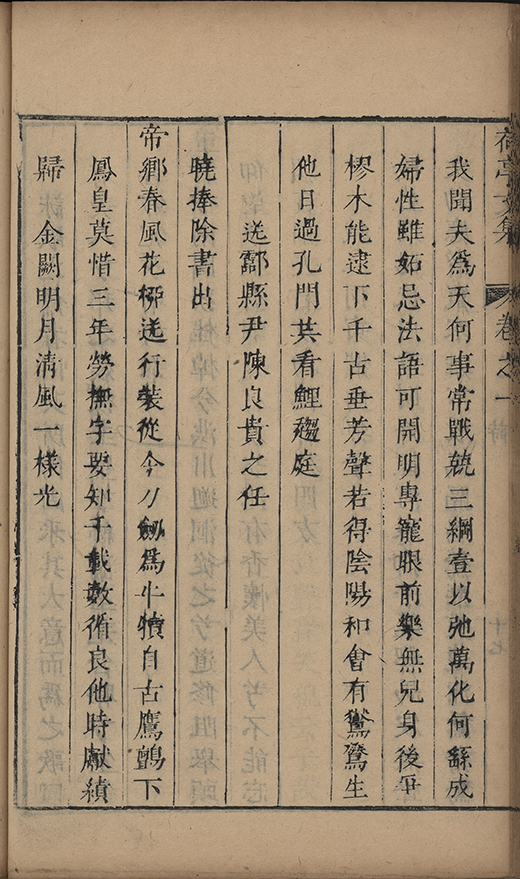 荷亭文集 卷之一 詩 十七
我聞夫爲天何事常戰兢三綱壹以弛萬化何繇成
婦性雖妬忌法語可開明專寵眼前樂無兒身後爭
樛木能逮下千古垂芳聲若得陰陽和會有鸑鷟生
他日過孔門共看鯉趨庭
送酃縣尹陳良貴之任
曉捧除書出
帝鄉春風花柳送行裝從今刀劒爲牛犢自古鷹鸇下
鳳皇莫惜三年勞撫字要知千載數循良他時獻績
歸 金闕明月清風一樣光